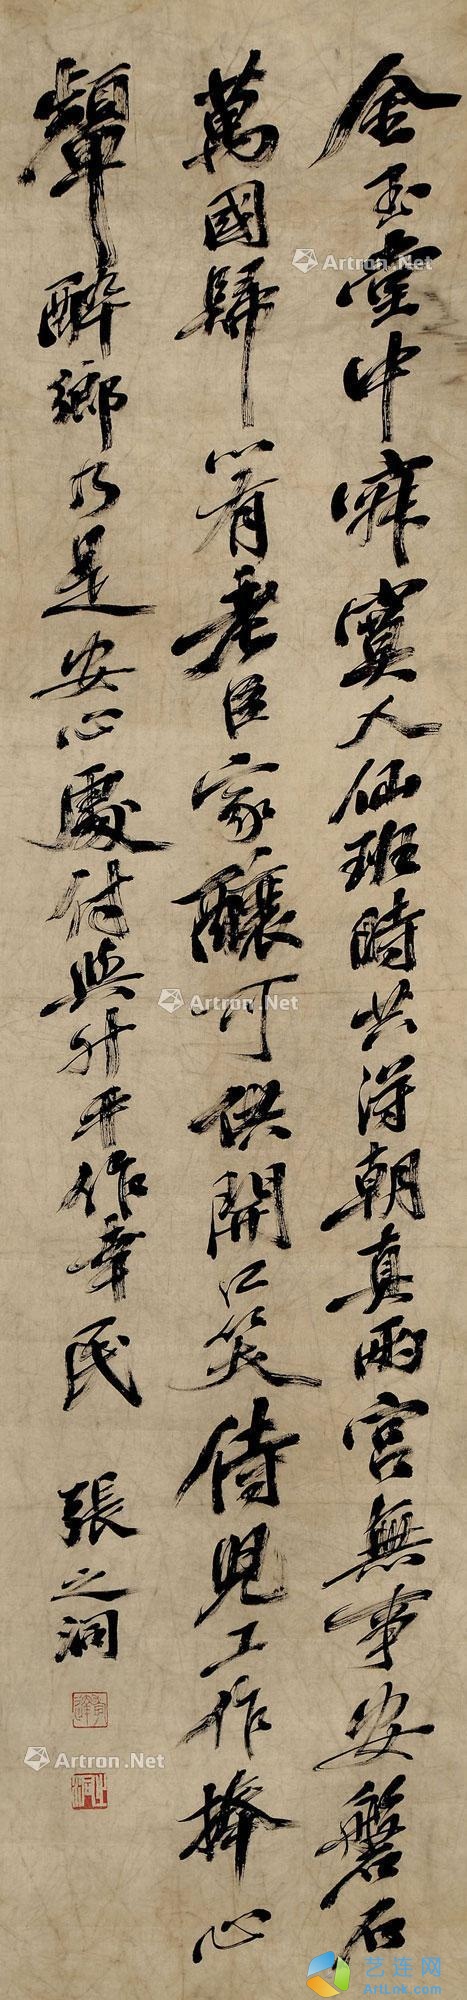 金玉堂中寂寞人仙班時共得朝真兩宮無事安磐石
萬國歸心有老臣家釀可供開口笑侍兒工作捧心
顰醉鄉乃是安心處付與升平作幸民 張之洞
Artron.Net
Artron.Net
Artron.Net
艺连网
ArtLink.Com